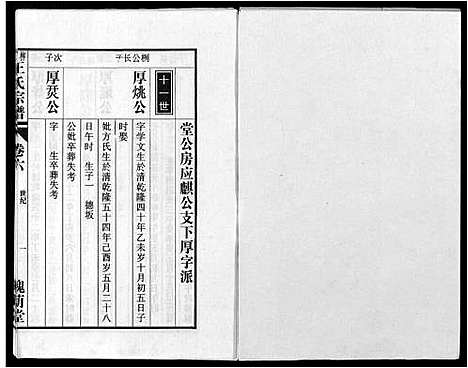 堂公房应麒公支下厚字派
十一世
栵公长子
厚烑公
字学文生於清乾隆四十年乙未岁十月初五日子
时娶
妣方氏生於清乾隆五十四年己酉岁五月二十八
日午时 生子一 德坂
公妣卒葬失考
次子
厚烎公
字 生卒葬失考
王氏宗谱
卷六
世纪
一
槐荫堂